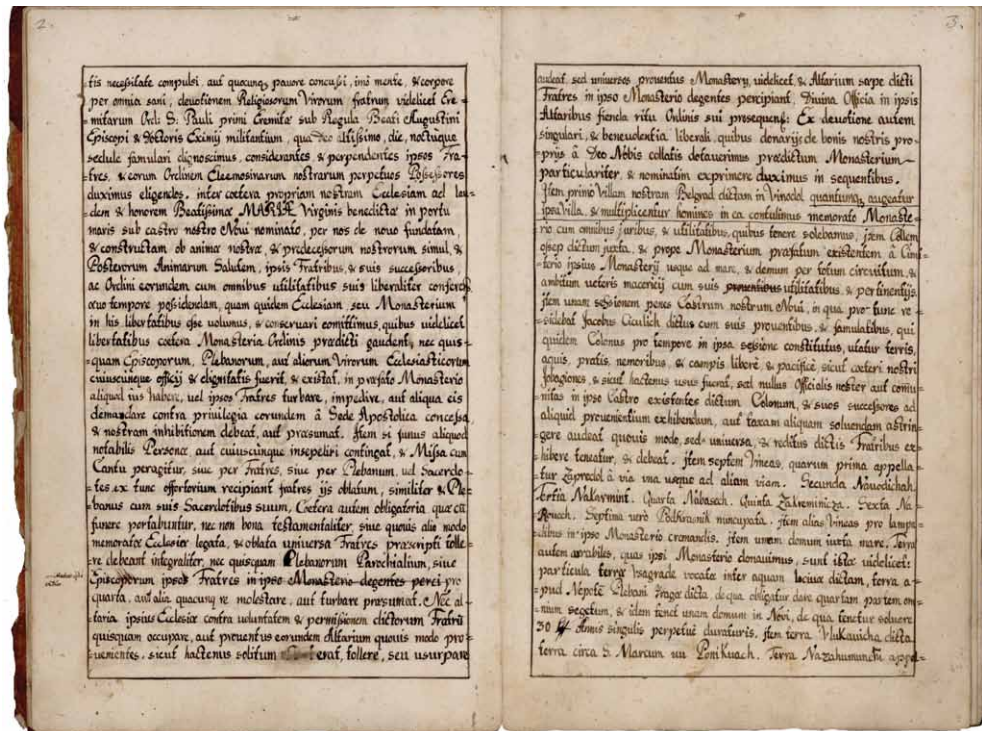 2.
tis necessitate compulsi aut quocunq pavore concussi, imò mente, & corpore
per omnia sani, devotionem Religiosorum Virorum fratrum videlicet Ere=
mitarum Ord: S: Pauli primi Eremitæ sub Regula Beati Augustini
Episcopi & Doctoris Eximij militantium, qua Deo Altissimo, die, noctuque
sedule famulari dignoscimus, considerantes & perpendentes ipsos Fra=
tres, & eorum Ordinem Eleemosinarum nostrarum perpetuos Possessores
duximus eligendos. inter cœtera propriam nostram Ecclesiam ad lau=
dem & honorem Beatissimæ MARIÆ Virginis benedictæ in portu
maris sub castro nostro Novi nominato, per nos de novo fundatam,
& constructam ob animæ nostræ, & predecessorum nostrorum simul &
Posterorum Animarum Salutem, ipsis Fratribus, & suis successoribus,
ac Ordini eorundem cum omnibus utilitatibus suis liberaliter conferens
ævo tempore possidendam, quam quidem Ecclesiam, seu Monasterium
in his libertatibus esse volumus, & conservari comittimus, quibus videlicet
libertatibus cœtera Monasteria Ordinis prædicti gaudent, nec quis=
quam Episcoporum, Plebanorum, aut aliorum Virorum Ecclesiasticorum
cuiuscunque officij & dignitatis fuerit, & existat, in præfato Monasterio
aliquod ius habere, vel ipsos Fratres turbare, impedire, aut aliqua eis
demandare contra privilegia eorundem â Sede Apostolica concessa,
& nostram inhibitionem debeat, aut præsumat. Item si funus aliquod
notabilis Personæ, aut cuiuscunque insepeliri contingat, & Missa cum
Cantu peragitur, sive per Fratres, sive per Plebanum, vel Sacerdo=
tes ex tunc offertorium recipiant fratres ijs oblatum, similiter & Ple=
banus cum suis Sacerdotibus suum, Cœtera autem obligatoria quæ cũ
funere portabuntur, nec non bona testamentaliter, sive quovis alio modo
memoratæ Ecclesiæ legata, & oblata universa Fratres præscripti tolle=
re debeant integraliter, nec quisquam Plebanorum Parochialium, sive
Episcoporum ipsos Fratres in ipso Monasterio degentes pro
quarta, aut alia quacunq re molestare, aut turbare præsumat. Nec al=
taria ipsius Ecclesiæ contra voluntatem & permissionem dictorum Fratrũ
quisquam occupare, aut proventus eorundem Altarium quovis modo pro=
venientes, sicut hactenus solitum erat, tollere, seu usurpare
3.
audeat, sed universos proventus Monastery, videlicet, & Altarium sæpe dicti
Fratres in ipso Monasterio degentes percipiant, Divina Officia in ipsis
Altaribus fienda ritu Ordinis sui prosequens: Ex devotione autem
singulari, & benevolentia liberali, quibus donarijs de bonis nostris pro=
prijs â Deo Nobis collatis dotaverimus prædictum Monasterium
particulariter, & nominatim exprimere duximus in sequentibus.
Item primo Villam nostram Belgrad dictam in Vinodol quantumq augeatur
ipsa villa, & multiplicentur homines in ea contulimus memorato Monaste=
rio cum omnibus juribus, & utilitatibus, quibus tenere solebamus, item Collem
osep dictum juxta, & prope Monasterium præfatum existentem â Cimi=
terio ipsius Monasterij usque ad mare, & demum per totum circuitum, &
ambitum veteris maceriæ cum suis proventibus utilitatibus, & pertinentijs
item unam sessionem penes Castrum nostrum Novi, in qua pro tunc re=
sidebat Jacobus Ciculich dictus cum suis proventibus, & famulatibus, qui
quidem Colonus pro tempore in ipsa sessione constitutus, utatur terris,
aquis, pratis, nemoribus, & campis liberè, & pacificè, sicut cœteri nostri
Jobagiones, & sicut hactenus usus fuerat, sed nullus Officialis noster aut comu=
nitas in ipso Castro existentes dictum Colonum, & suos successores ad
aliquid provenientium exhibendum, aut taxam aliquam solvendam astrin=
gere audeat quovis modo, sed universa, & reditus dictis Fratribus ex=
hibere teneatur, & debeat. item septem Vineas, quarum prima appella=
tur Zapredol â via una usque ad aliam viam. Secunda Navodichah.
Tertia Nakarmint. Quarta Nabasech. Quinta Zakreminicza. Sexta Na=
Rovech. Septima verò Podkrasnik nuncupata. item alias Vineas pro lampa=
dibus in ipso Monasterio cremandis. item unam domum iuxta mare. Terræ
autem arabiles, quas ipsi Monasterio donavimus, sunt istæ videlicet:
particula terræ Vsagrade vocata inter aquam lociva dictam, terra a=
pud Nepote Plebani Fraga dicta, de qua obligatur dare quartam partem om=
nium segetum, & idem tenet unam domum in Novi, de qua tenetur solvere
30 Annis singulis perpetuè duraturis. item terra Vlukavicha dicta.
terra circa S. Marcum in PoniKvach. Terra Nazahumuncki appel=